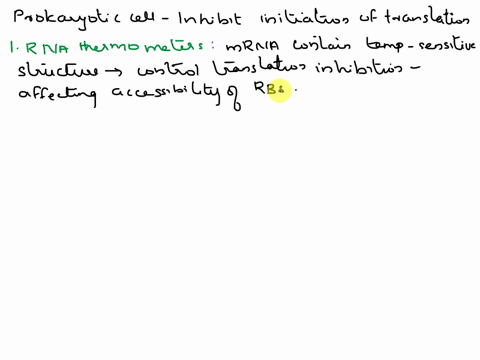 Prokaryotic cell - Inhibit initiation of translation
1. RNA thermometers: mRNA contain temp-sensitive
structure → control translation inhibition -
affecting accessibility of RBS.